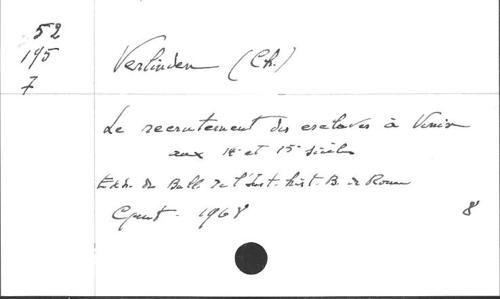 52
195
7
Verlinden (Ch.)
Le recrutement des esclaves à Venise
aux 14e et 15e siècles
Extr. du Bull. de l'Inst. hist. B. de Rome
Gand. 1968
8°